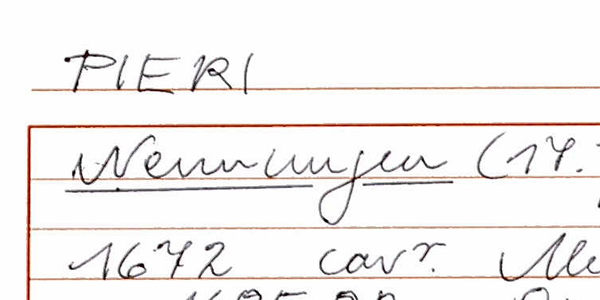 PIERI
Wenningen (17.
1672 cavr.